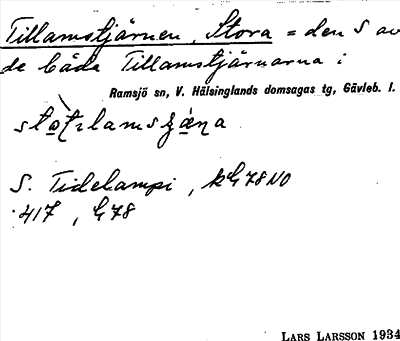 Tillamstjärnen, Stora = den S av
de båda Tillamstjärnarna i
Ramsjö sn, V. Hälsinglands domsagas tg, Gävleb. l.
S. Tidelampi, kG78NO
417, G78
LARS LARSSON 1934